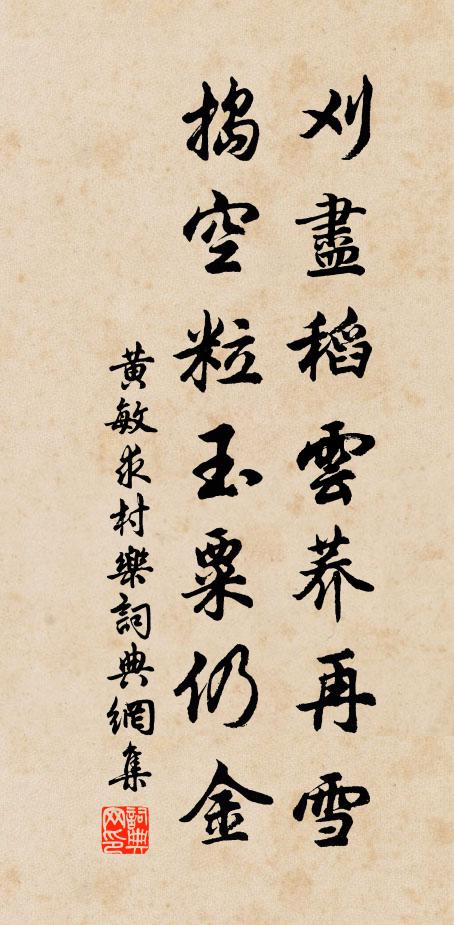 刈盡稻雲荞再雪
搗空粒玉粟仍金
黃敏求村樂詞典網集
詞典网印